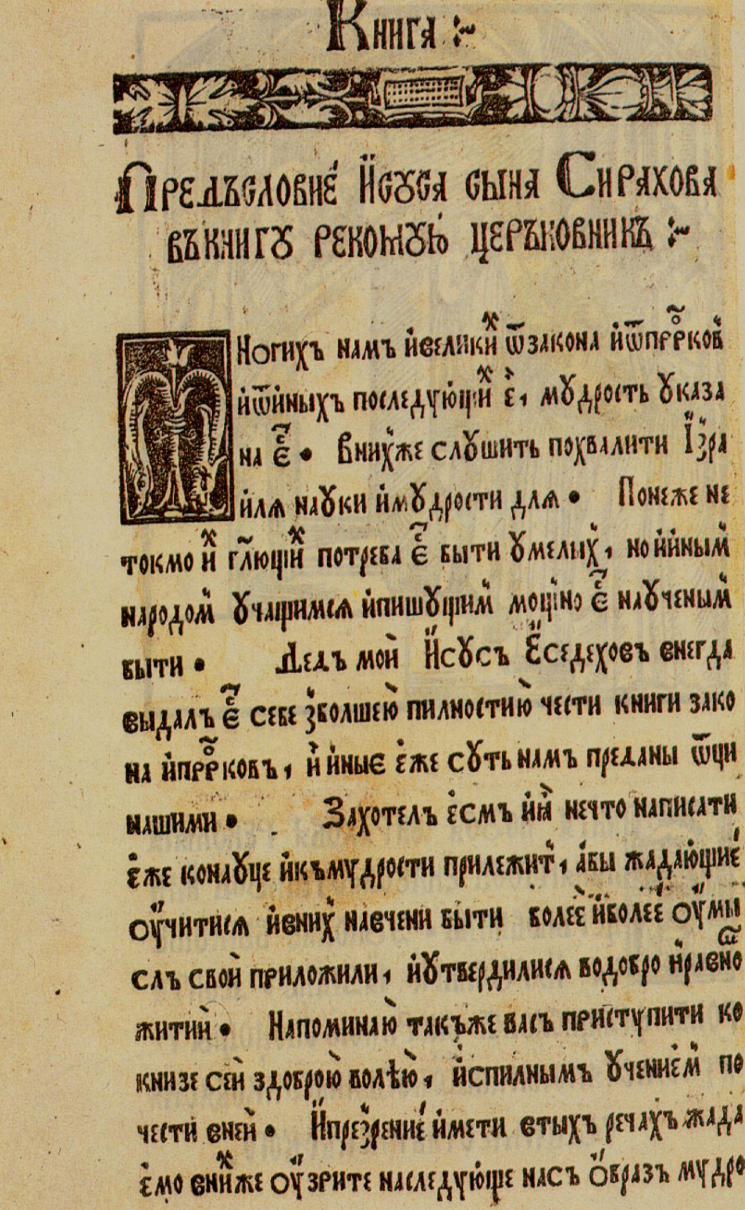 Книга :~
Предъсловие́ Исꙋса сына Сирахова
въкнигꙋ рекомꙋю церъковникъ :~
Многихъ намъ ивеликиⷯ ѿзакона иѿпрⷪркоⷡ
иѿиныхъ последꙋющиⷯ е҆, мꙋдрость ꙋказа
на еⷭ҇ • Внихже слꙋшить похвалити Ізра
илѧ наꙋки имꙋдрости длѧ • Понеже не
токмо иⷯ гл҃ющиⷯ потреба еⷭ҇ быти ꙋмелыⷯ, но ииныⷨ
народоⷨ ꙋчащимсѧ ипишꙋщиⷨ мощно еⷭ҇ наꙋченыⷨ
быти • Дедъ мой Исꙋсъ Еседеховъ внегда
выдалъ еⷭ҇ себе зболшею пилностию чести книги зако
на ипрⷪрковъ, и иные еже сꙋть намъ преданы ѿци
нашими • Захотелъ есмъ иⷨ нечто написати
еже конаꙋце икъмудрости прилежиⷮ, абы жадающие
оучитисѧ ивниⷯ навчени быти более иболее оумы
слъ свой приложили, иꙋтвердилисѧ водобро нравно
житии • Напоминаю такъже васъ приступити ко
книзе сей здоброю волѣю, испилнымъ ꙋчениеⷨ по
чести вней • Ипрезрение имети втыхъ речахъ жада
емо вниⷯже оузрите наследующе насъ ѻбразъ мудро